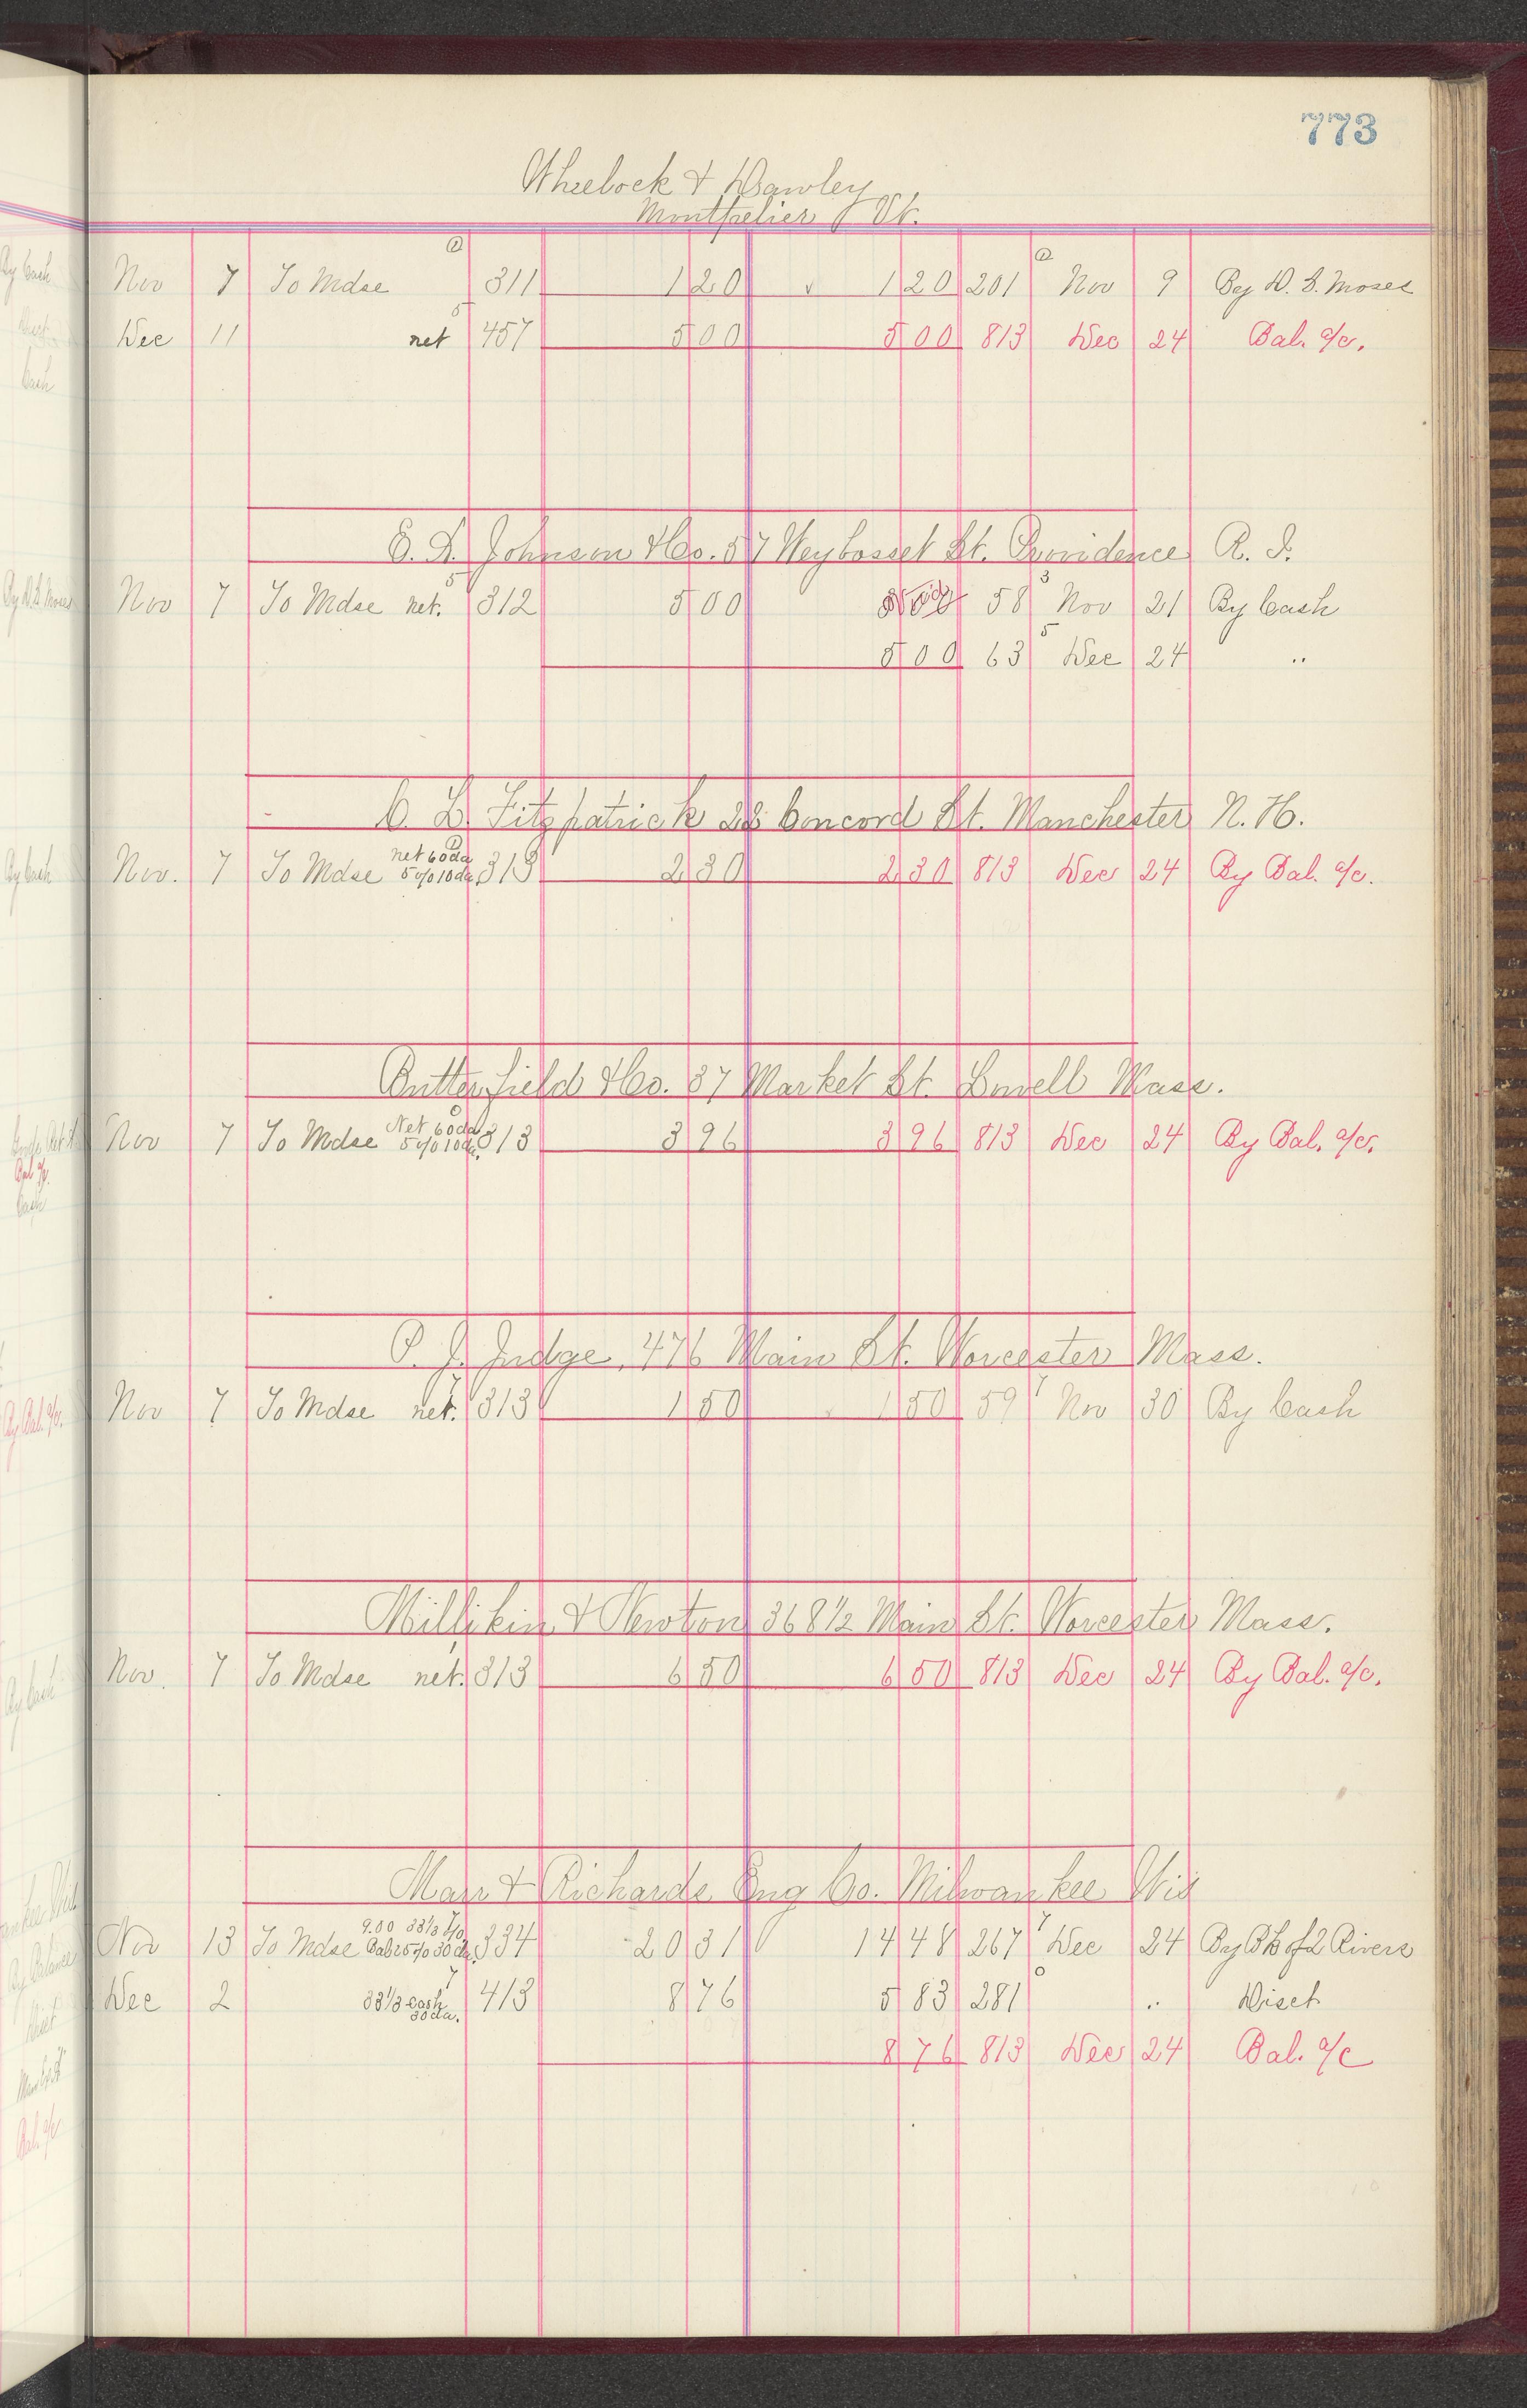 773
Wheelock & Dawley
Montpelier Vt.
Nov 7 To Mdse 311 1 20 1 20 201 Nov 9 By D. S. Moses
Dec 11 net 457 5 00 5 00 813 Dec 24 Bal. a/c.
E. A. Johnson & Co. 57 Weybosset St. Providence R. I.
Nov 7 To Mdse net. 312 5 00 5 00 58 Nov 21 By Cash
5 00 63 Dec 24 "
C. L. Fitzpatrick 28 Concord St. Manchester N. H.
Nov. 7 To Mdse net 60 da 5% 10 da. 313 2 30 2 30 813 Dec 24 By Bal. a/c.
Butterfield & Co. 37 Market St. Lowell Mass.
Nov 7 To Mdse Net 60 da 5% 10 da. 313 3 96 3 96 813 Dec 24 By Bal. a/c.
P. J. Judge, 476 Main St. Worcester Mass.
Nov 7 To Mdse net. 313 1 50 1 50 59 Nov 30 By Cash
Millikin & Newton 368 1/2 Main St. Worcester Mass.
Nov. 7 To Mdse net. 313 6 50 6 50 813 Dec 24 By Bal. a/c.
Marr & Richards Eng Co. Milwaukee Wis
Nov 13 To Mdse 9.00 33 1/3 % Bal 25% 30 da. 334 20 31 14 48 267 Dec 24 By Bk of 2 Rivers
Dec 2 33 1/3 cash 30 da. 413 8 76 5 83 281 " Disct
8 76 813 Dec 24 Bal. a/c